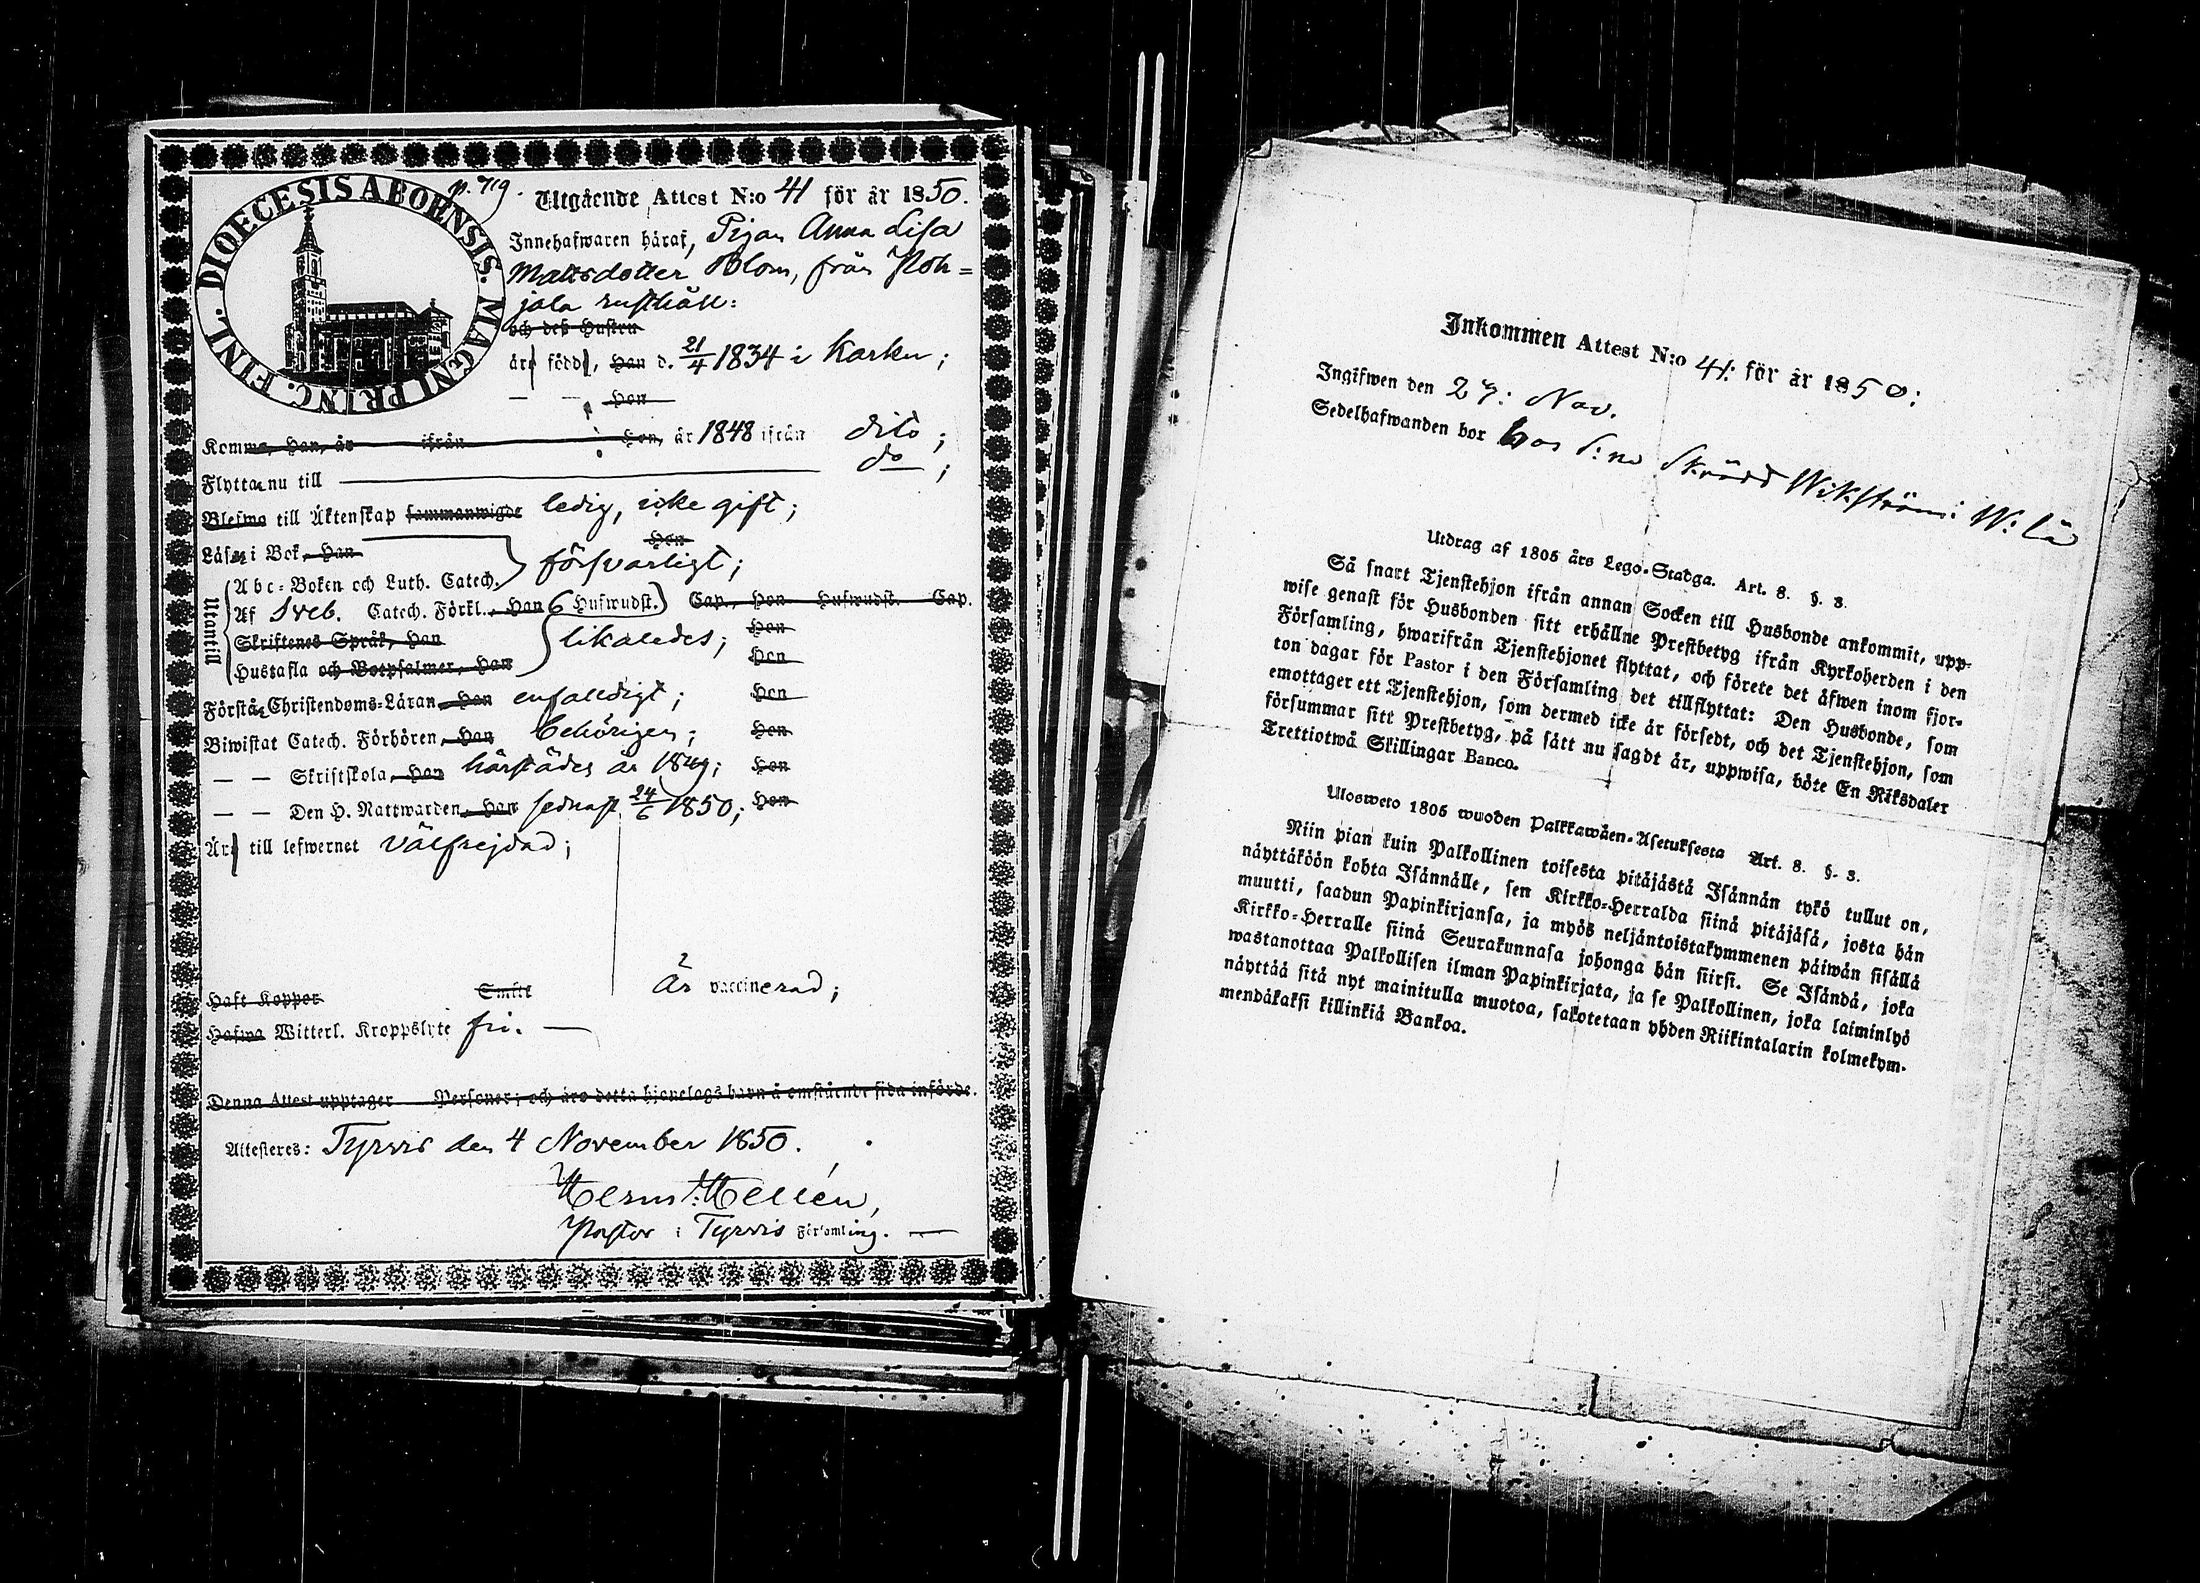 DIOECESIS ABOENSIS. MAGNI PRINC. FINL.
p. 719.
Utgående Attest N:o 41 för år 1850.
Innehafwaren häraf, Pigan Anna Lisa
Mattsdotter Blom, från Poh=
jola rusthåll:
och deß Hustru
är född, Han d. 21/4 1834 i Karku;
— — Hon
Komma, Han, år ifrån Hon, år 1848 ifrån dito;
Flytta nu till do;
Blefwa till Äktenskap sammanwigde ledig, icke gift;
Läser i Bok, Han Hon
Abc-Boken och Luth. Catech. försvarligt;
Utantill
Af Sveb. Catech. Förkl., Han 6 Hufwudst. Cap., Hon Hufwudst. Cap.
Skriftenes Språk, Han likaledes; Hon
Hustafla och Botpsalmer, Han Hon
Förstå Christendoms-Läran, Han enfaldigt; Hon
Biwistat Catech. Förhören, Han behörigen; Hon
— — Skriftskola, Han härstädes år 1849; Hon
— — Den H. Nattwarden, Han sednast 24/6 1850; Hon
Är till lefwernet välfrejdad;
Haft Koppor Smitt Är vaccinerad;
Hafwa Witterl. Kroppslyte fri. —
Denna Attest upptager Personer; och äro detta hjonelags barn å omstående sida införde.
Attesteres: Tyrvis den 4 November 1850.
Herm. Hellén,
Pastor i Tyrvis Församling. —
Inkommen Attest N:o 41: för år 1850:
Ingifwen den 27: Nov.
Sedelhafwanden bor hos Skrädd Wikström: W: Lä
Utdrag af 1805 års Lego-Stadga. Art. 8. §. 3.
Så snart Tjenstehjon ifrån annan Socken till Husbonde ankommit, upp-
wise genast för Husbonden sitt erhållne Prestbetyg ifrån Kyrkoherden i den
Församling, hwarifrån Tjenstehjonet flyttat, och förete det äfwen inom fjor-
ton dagar för Pastor i den Församling det tillflyttat: Den Husbonde, som
emottager ett Tjenstehjon, som dermed icke är försedt, och det Tjenstehjon, som
försummar sitt Prestbetyg, på sått nu sagdt är, uppwisa, böte En Riksdaler
Trettiotwå Skillingar Banco.
Ulosweto 1805 wuoden Palkkawäen-Asetuksesta Art. 8. §. 3.
Niin pian kuin Palkollinen toisesta pitäjästä Isännän tykö tullut on,
näyttäköön kohta Isännälle, sen Kirkko-Herralda siinä pitäjäsä, josta hän
muutti, saadun Papinkirjansa, ja myös neljäntoistakymmenen päiwän sisällä
Kirkko-Herralle siinä Seurakunnasa johonga hän siirsi. Se Isändä, joka
wastanottaa Palkollisen ilman Papinkirjata, ja se Palkollinen, joka laiminlyö
näyttää sitä nyt mainitulla muotoa, sakotetaan yhden Riikintalarin kolmekym-
mendäkaksi killinkiä Bankoa.